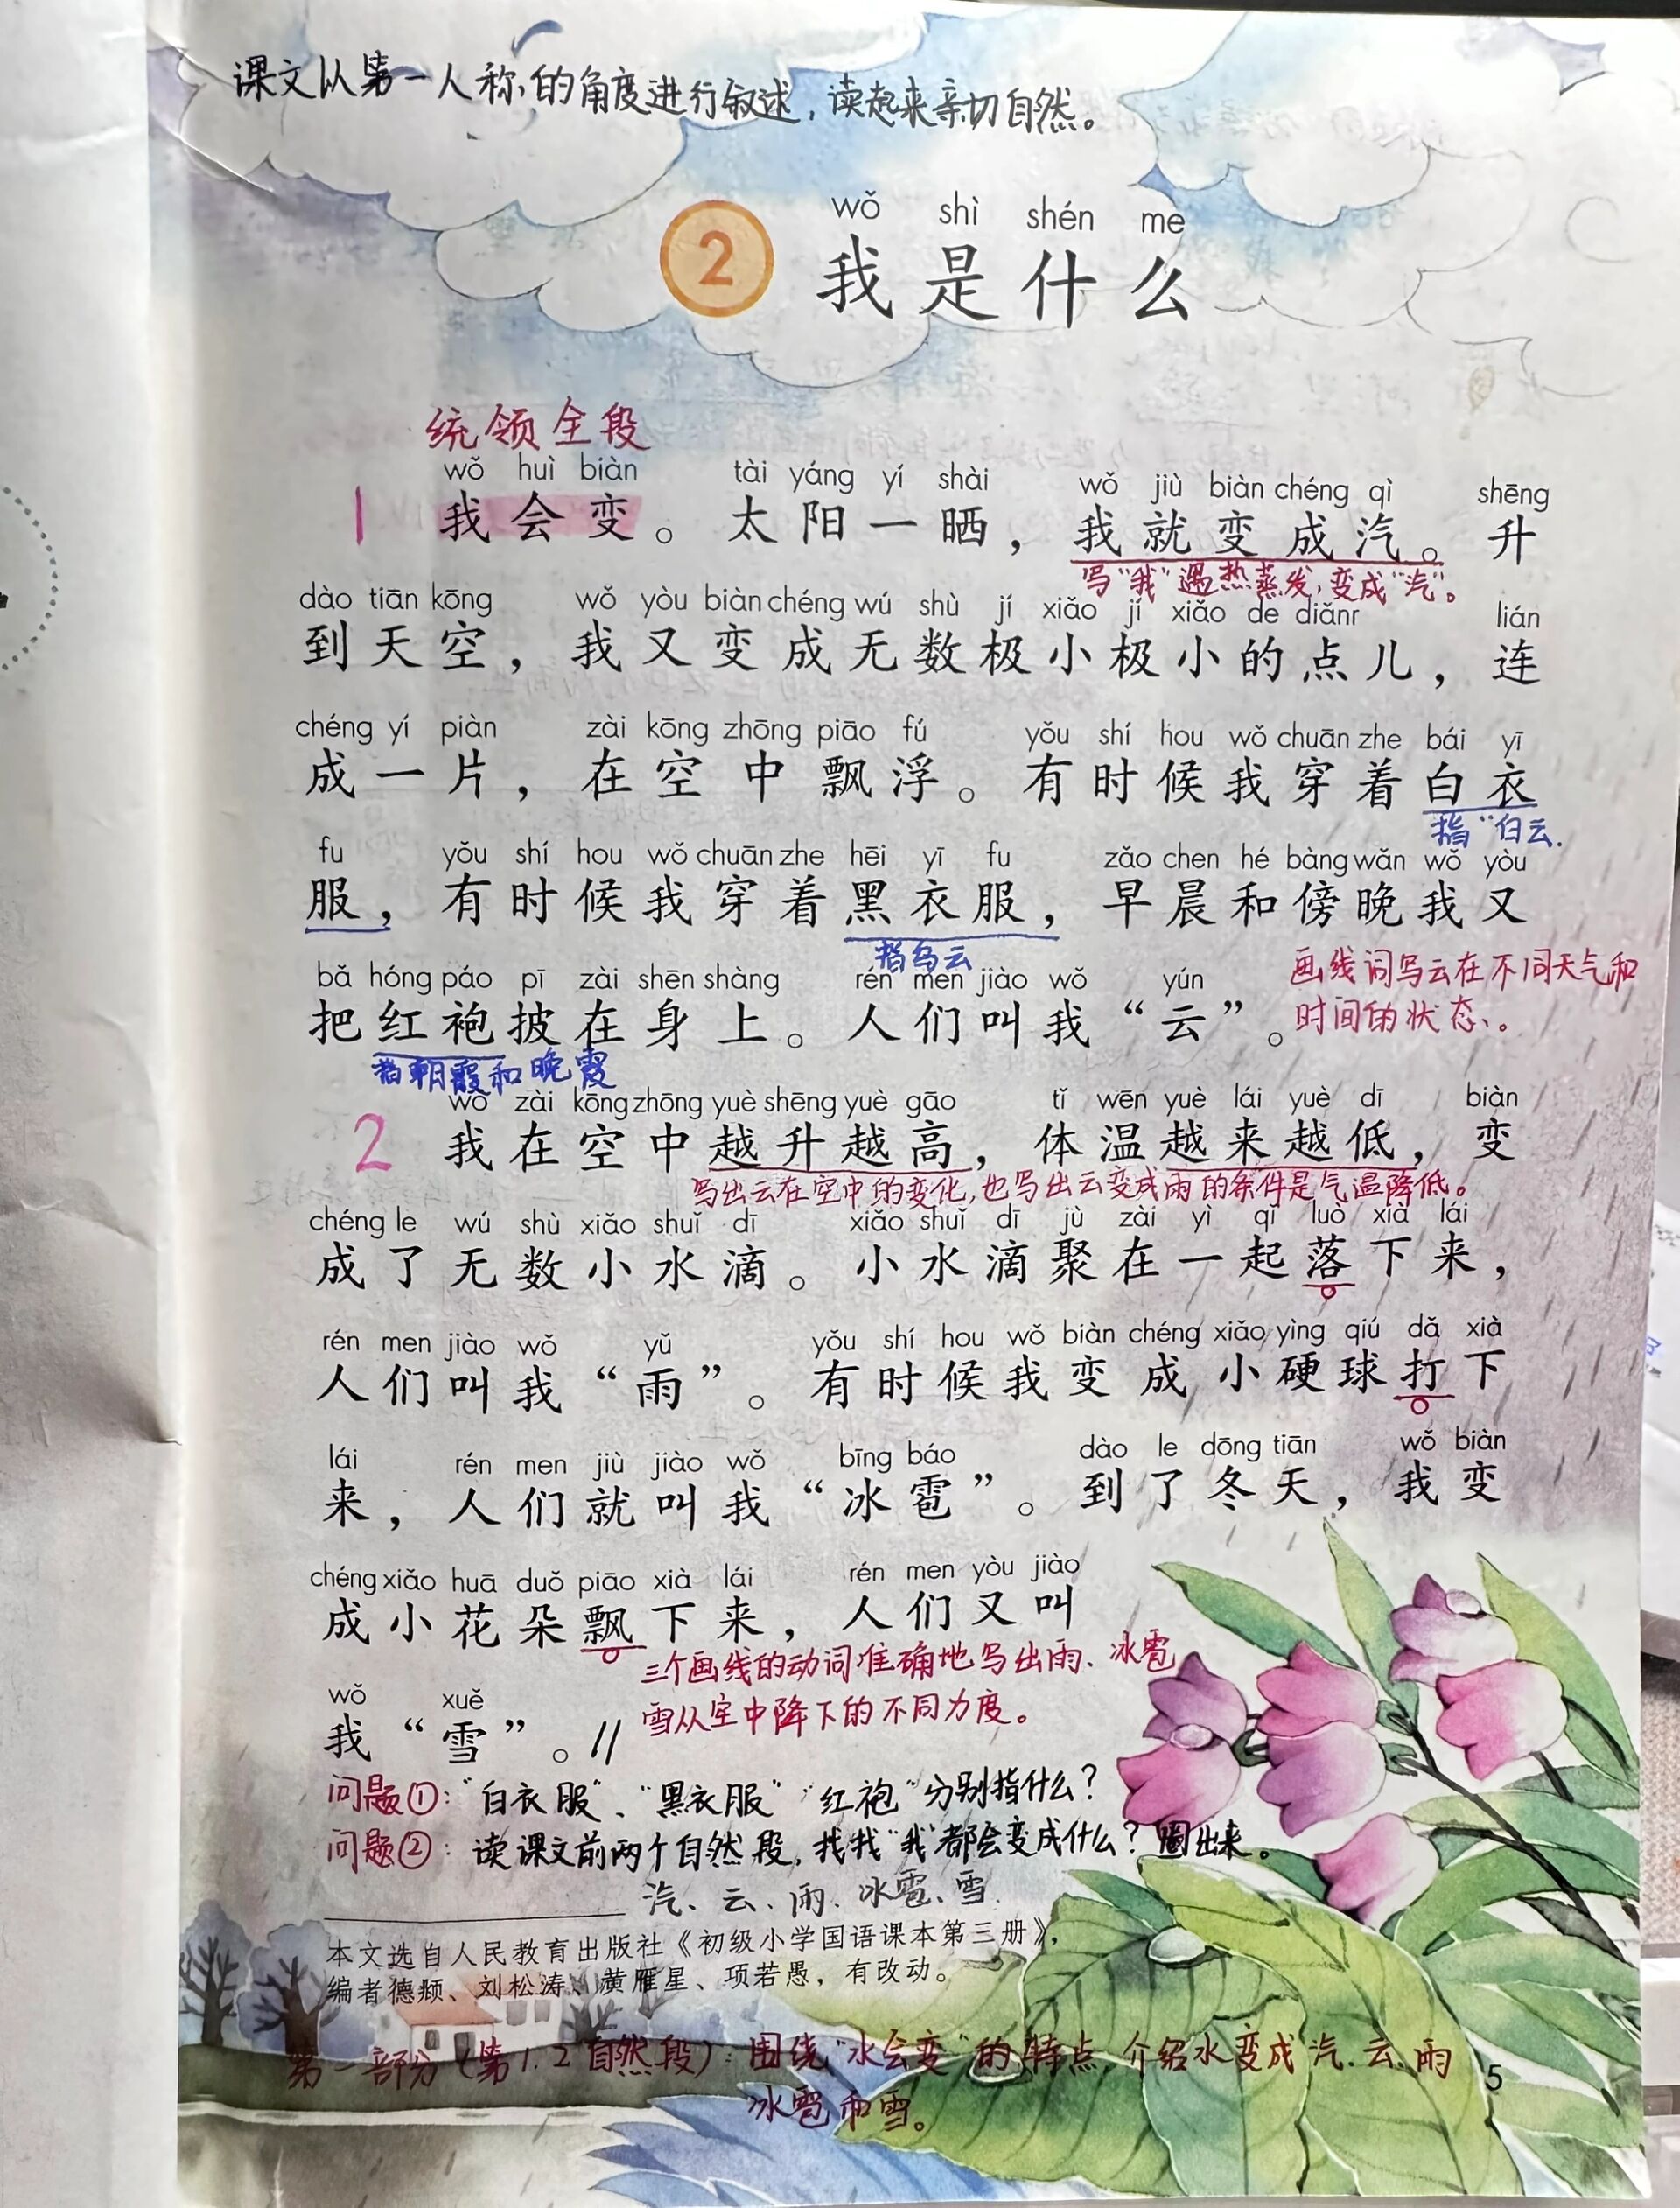 课文从第一人称的角度进行叙述，读起来亲切自然。
wǒ shì shén me
2 我是什么
统领全段
wǒ huì biàn tài yáng yí shài wǒ jiù biàn chéng qì shēng
1 我会变。太阳一晒，我就变成汽。升
写“我”遇热蒸发，变成“汽”。
dào tiān kōng wǒ yòu biàn chéng wú shù jí xiǎo jí xiǎo de diǎnr lián
到天空，我又变成无数极小极小的点儿，连
chéng yí piàn zài kōng zhōng piāo fú yǒu shí hou wǒ chuān zhe bái yī
成一片，在空中飘浮。有时候我穿着白衣
指“白云.
fu yǒu shí hou wǒ chuān zhe hēi yī fu zǎo chen hé bàng wǎn wǒ yòu
服，有时候我穿着黑衣服，早晨和傍晚我又
指乌云
bǎ hóng páo pī zài shēn shàng rén men jiào wǒ yún
把红袍披在身上。人们叫我“云”。
画线词写云在不同天气和
时间的状态。
指朝霞和晚霞
wǒ zài kōng zhōng yuè shēng yuè gāo tǐ wēn yuè lái yuè dī biàn
2 我在空中越升越高，体温越来越低，变
写出云在空中的变化，也写出云变成雨的条件是气温降低。
chéng le wú shù xiǎo shuǐ dī xiǎo shuǐ dī jù zài yì qǐ luò xià lái
成了无数小水滴。小水滴聚在一起落下来，
rén men jiào wǒ yǔ yǒu shí hou wǒ biàn chéng xiǎo yìng qiú dǎ xià
人们叫我“雨”。有时候我变成小硬球打下
lái rén men jiù jiào wǒ bīng báo dào le dōng tiān wǒ biàn
来，人们就叫我“冰雹”。到了冬天，我变
chéng xiǎo huā duǒ piāo xià lái rén men yòu jiào
成小花朵飘下来，人们又叫
三个画线的动词准确地写出雨、冰雹
wǒ xuě
我“雪”。//
雪从空中降下的不同力度。
问题①：“白衣服”、“黑衣服”“红袍”分别指什么？
问题②：读课文前两个自然段，找找“我”都会变成什么？圈出来。
汽、云、雨、冰雹、雪.
本文选自人民教育出版社《初级小学国语课本第三册》，
编者德颊、刘松涛、黄雁星、项若愚，有改动。
第一部分（第1.2自然段）：围绕“水会变”的特点，介绍水变成汽、云、雨
冰雹和雪。
5